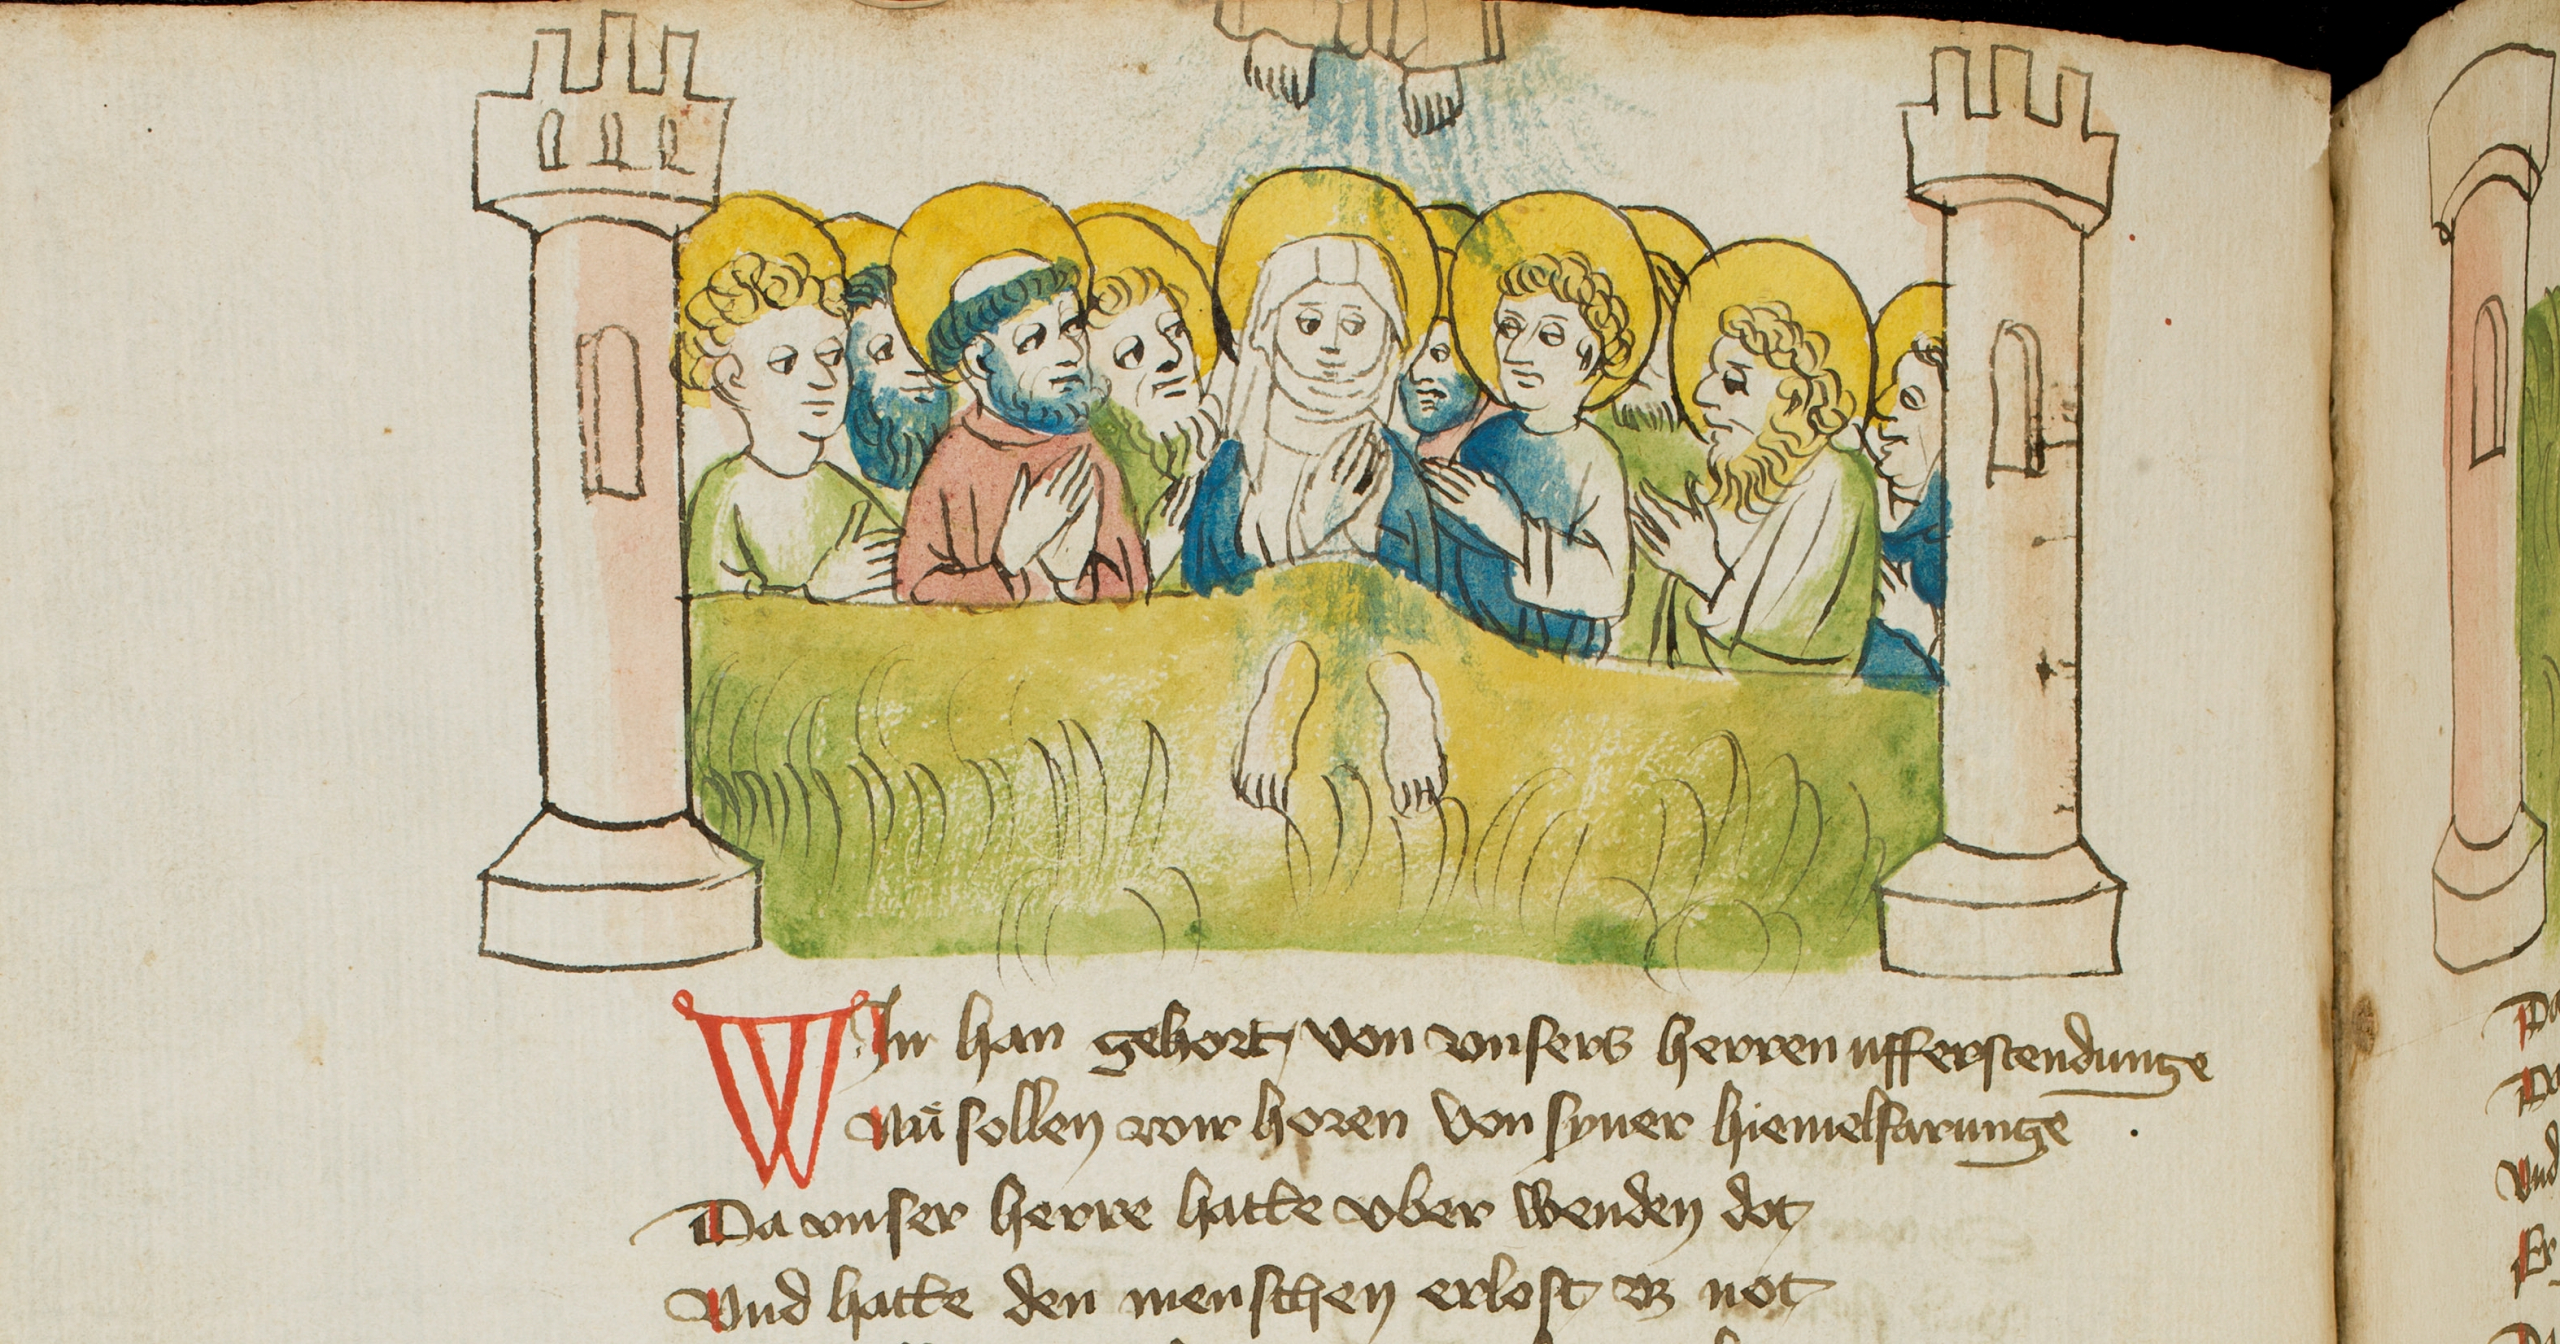 Wir han gehort von vnsers herren ufferstendunge
Nů sollen wir horen von syner hiemelfarunge
Da vnser herre hatte vber wenden dot
Vnd hatte den menschen erlost vz not